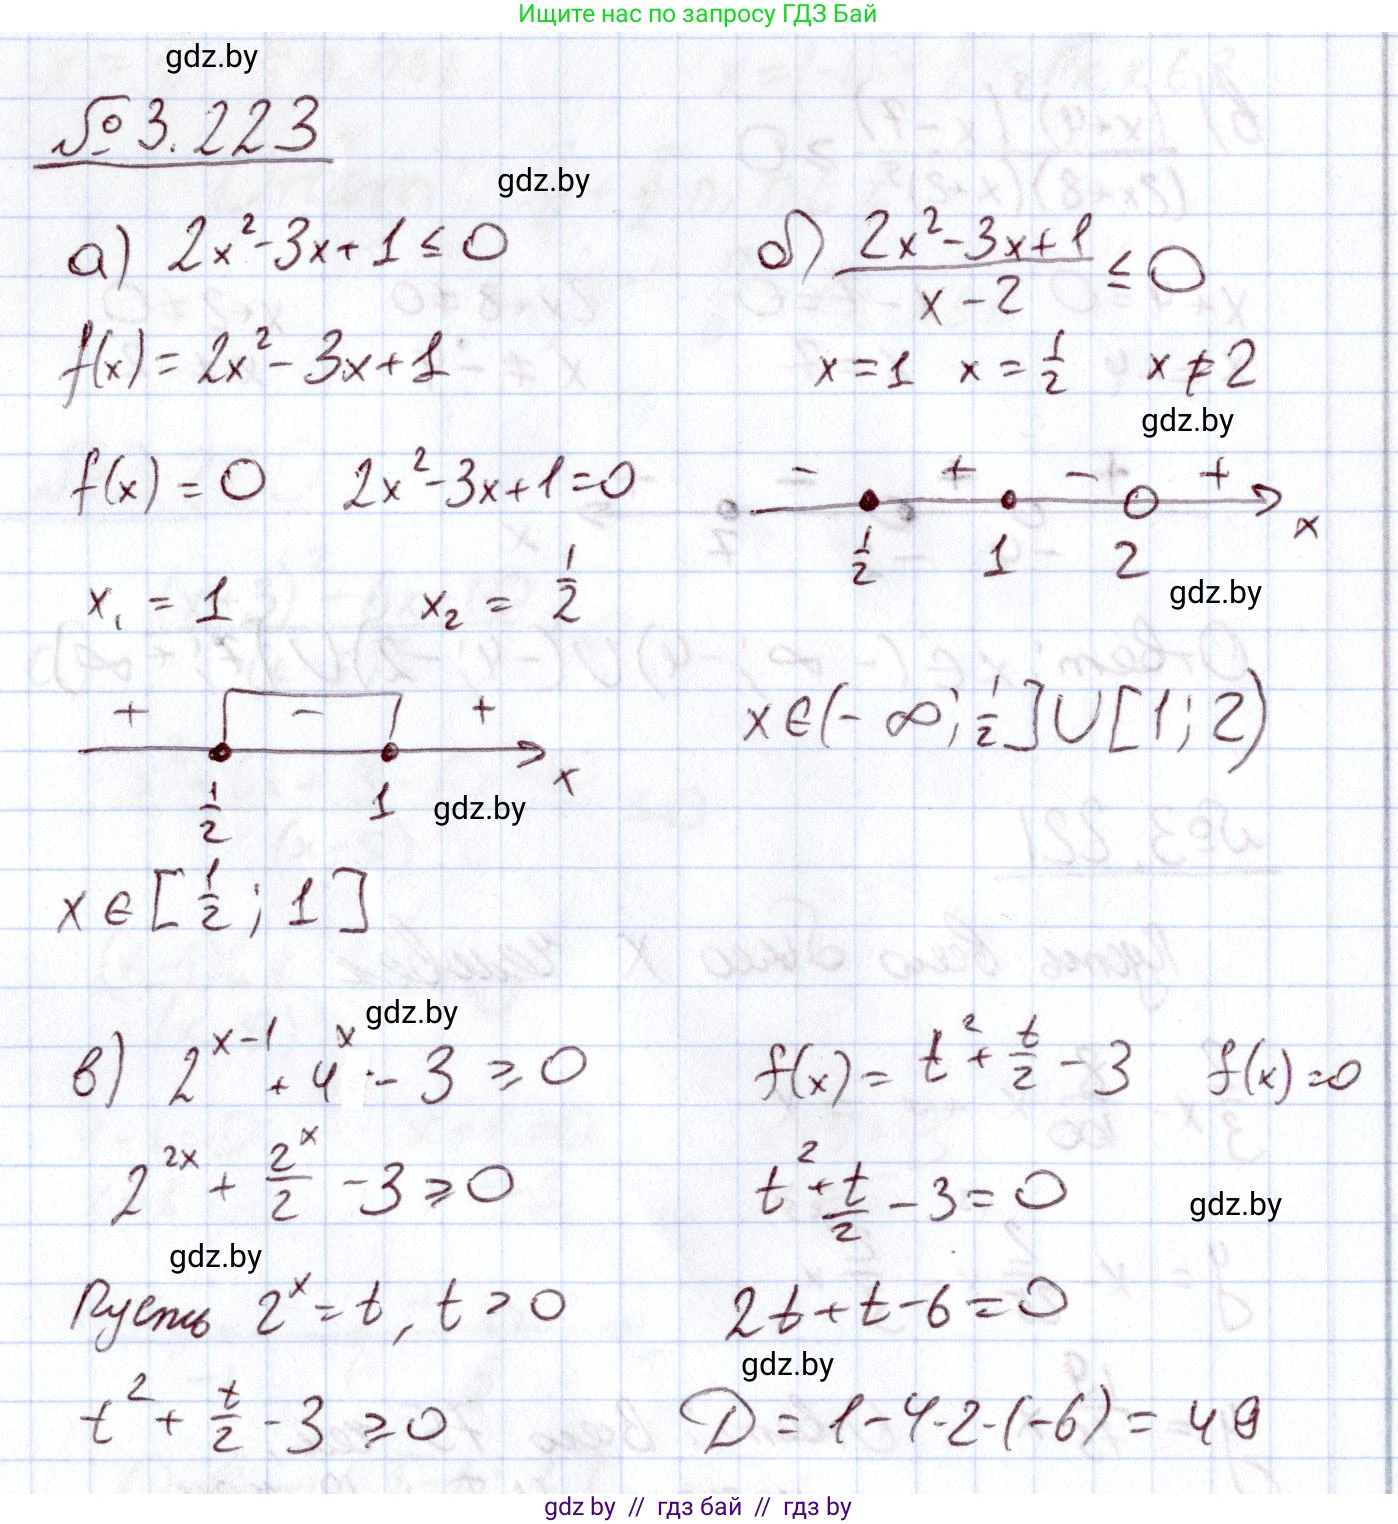 Ищите нас по запросу ГДЗ Бай
gdz.by
№ 3.223
gdz.by
а) 2x² - 3x + 1 ≤ 0
f(x) = 2x² - 3x + 1
f(x) = 0    2x² - 3x + 1 = 0
x₁ = 1    x₂ = 1/2
+ - +
x
1/2 1
gdz.by
x ∈ [1/2; 1]
б) (2x² - 3x + 1)/(x - 2) ≤ 0
x = 1   x = 1/2   x ≠ 2
gdz.by
- + - +
x
1/2 1 2
gdz.by
x ∈ (-∞; 1/2] ∪ [1; 2)
gdz.by
в) 2^(x-1) + 4^x - 3 ≥ 0
2^(2x) + 2^x/2 - 3 ≥ 0
gdz.by
Пусть 2^x = t, t > 0
t² + t/2 - 3 ≥ 0
f(x) = t² + t/2 - 3   f(x) = 0
t² + t/2 - 3 = 0
gdz.by
2t + t - 6 = 0
gdz.by
D = 1 - 4·2·(-6) = 49
gdz by // гдз бай // гдз by